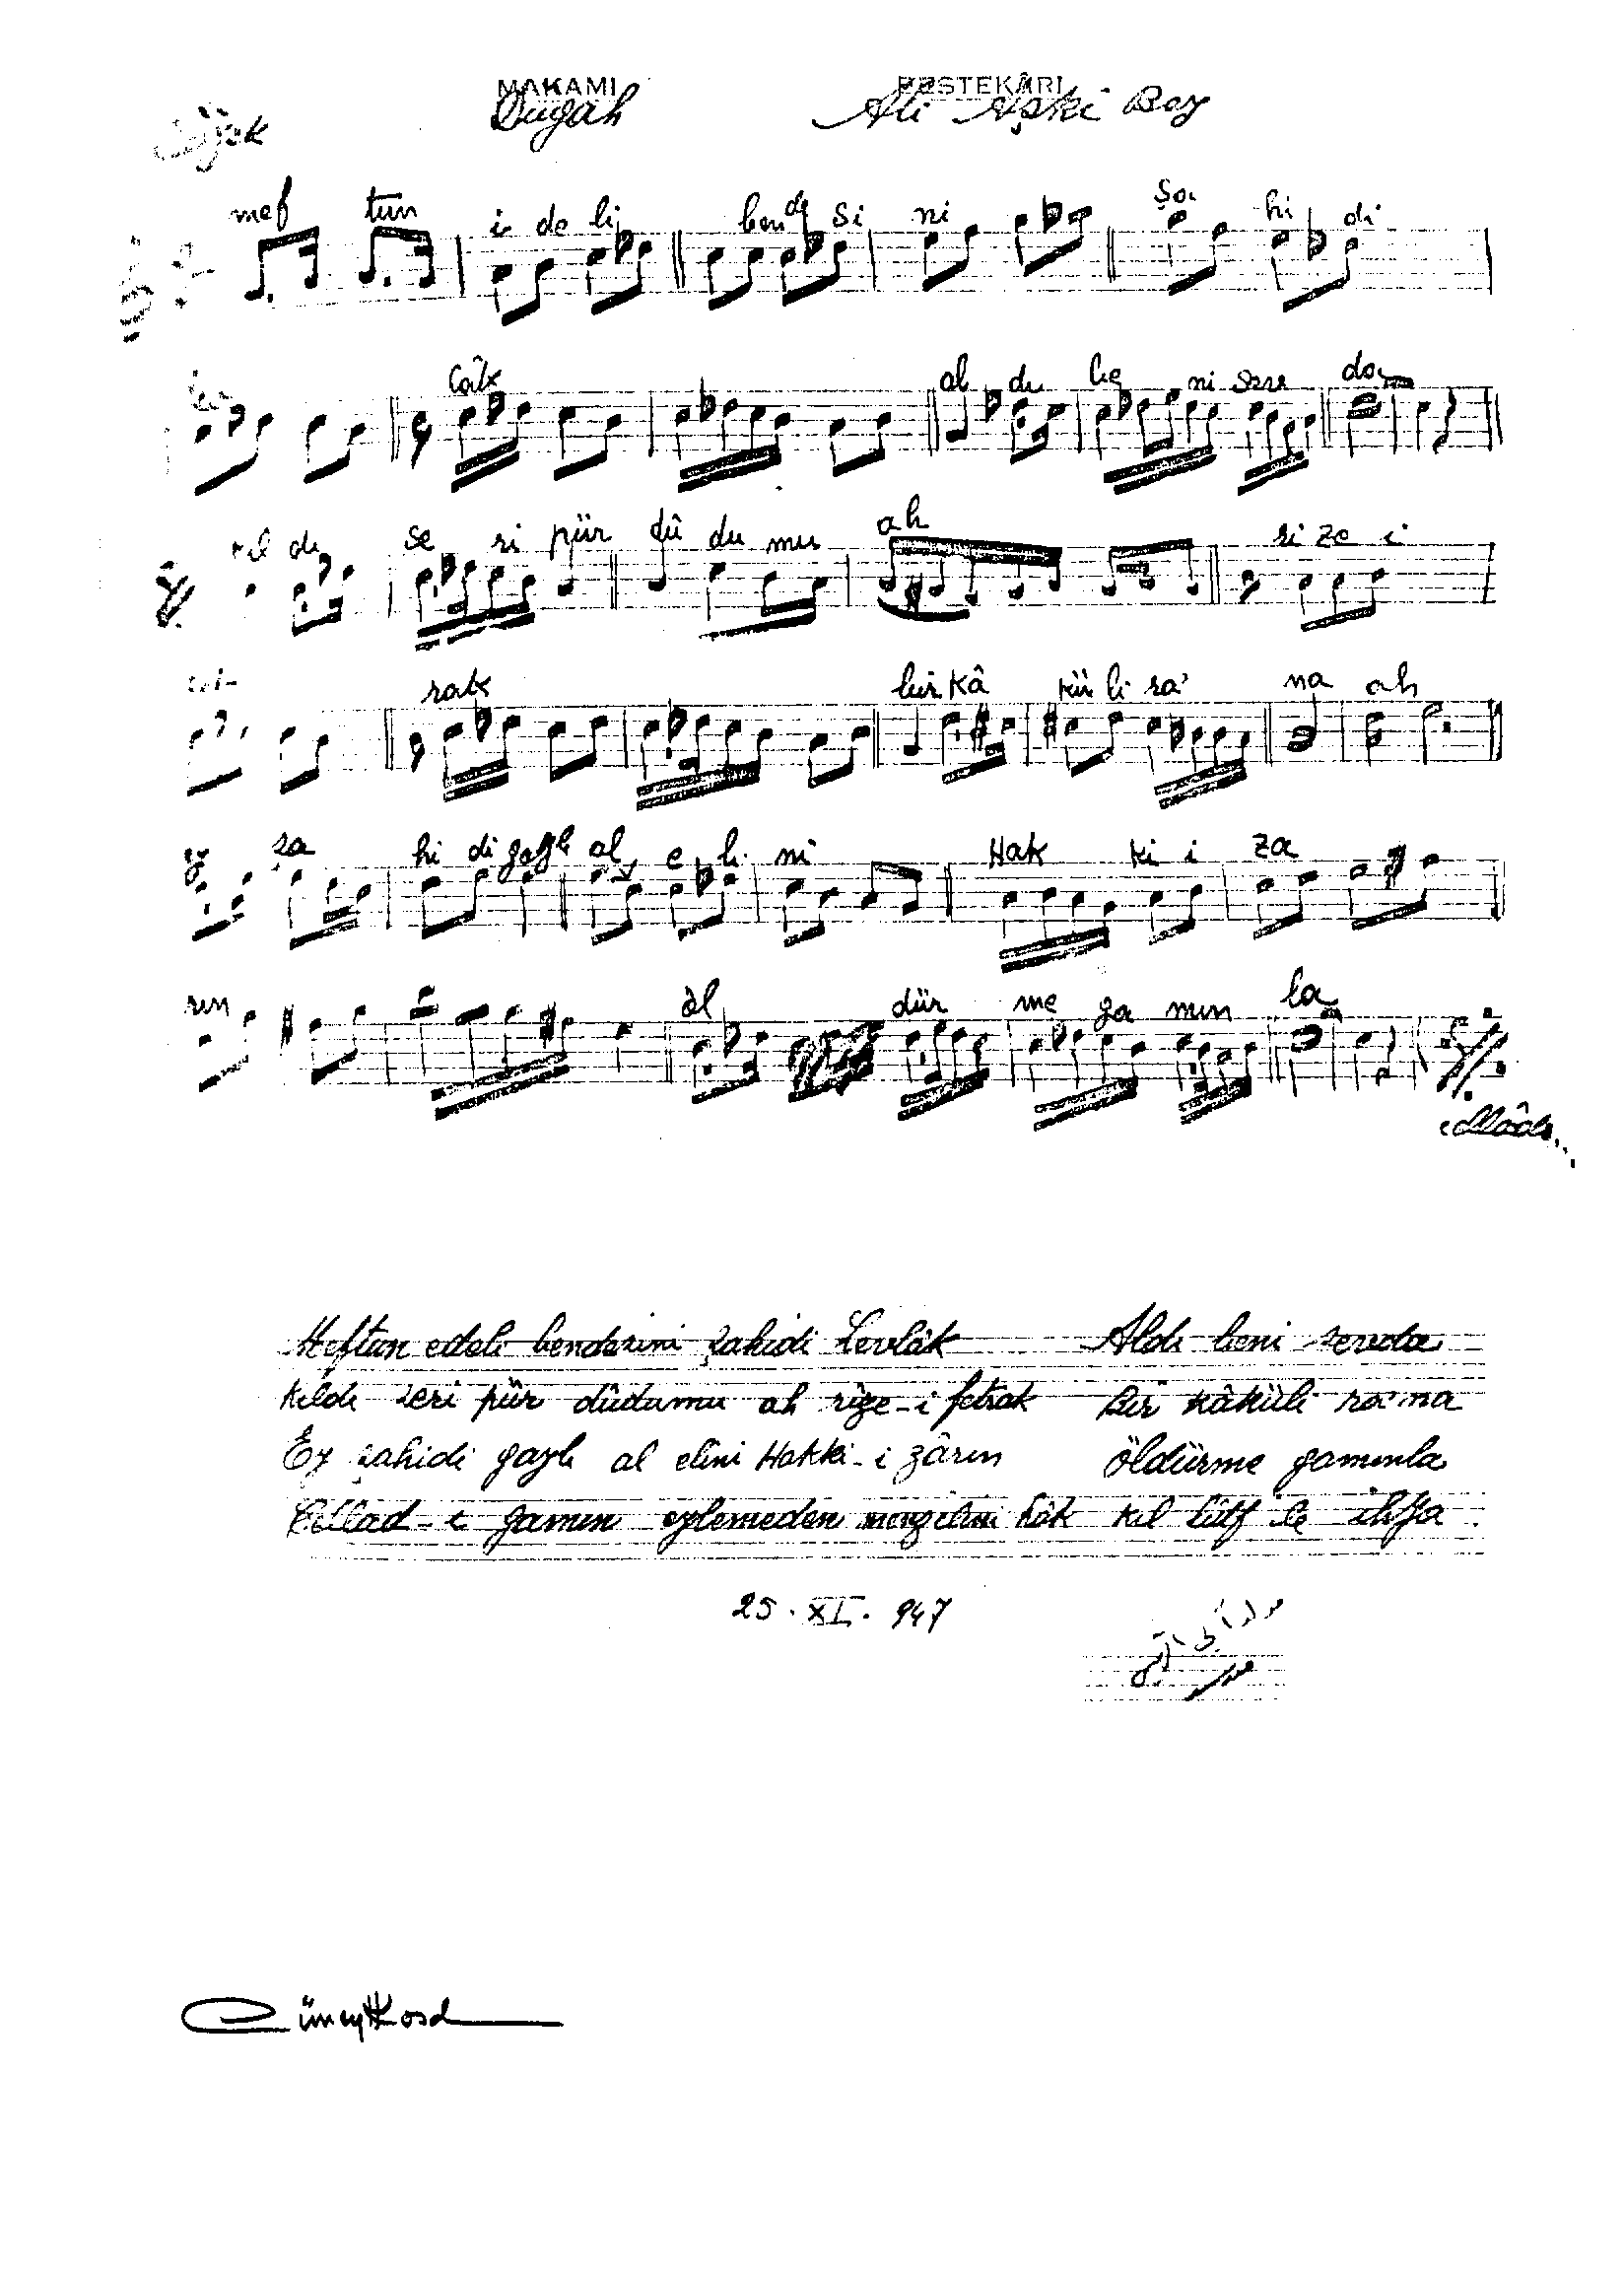 MAKAMI BESTEKÂRI
Dugâh Ali Aşki Bey
mef tun i de li ben de si ni şa hi di
lâk al dı be ni sev da
kıl dı se ri pür dû du mu ah ri ze i
fet- rak bir kâ kü li ra' na ah
ey şa hi di gayb al e li ni Hak ki i za
rın öl dür me ga mın la
Meftun edeli bendesini şahidi Levlâk Aldı beni sevda
Kıldı seri pür dûdumu ah rîze-i fetrak Bir kâküli ra'na
Ey şahidi gayb al elini Hakki-i zârın öldürme gamınla
Cellad-ı gamın eylemeden menzilini hâk kıl lûtf ile ihya
25.XI.947
Cüneyd Kosal